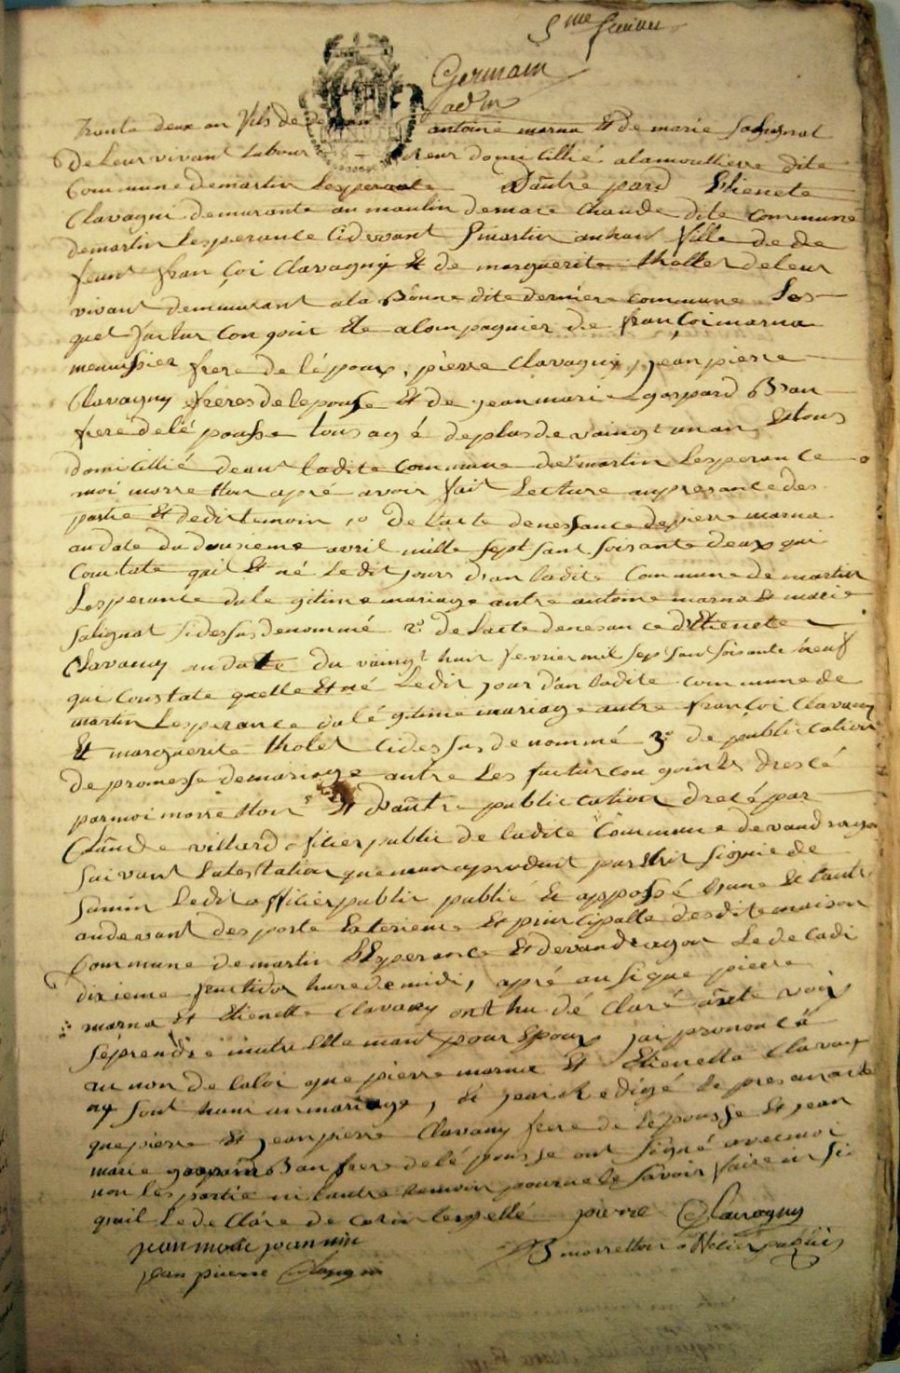 5me
Germain
trante deux an fils de antoine marna Et de marie Salignat
De leur vivant Labour reur domicillié alamoultiere dite
Commune demartin Lesperante D'autre pard Etienete
Clavagni demurante au moulin demare Chaude dite Commune
demartin Lesperance Cidevant St martin anhau fille de de
feunt françoi Clavagny Et de margueritte thollet deleur
vivant demeurant ala Bonne dite dernier Commune Les
quel futur Congoint Ete alompagnier de françoi marna
menuisier frere de lépoux, pierre Clavagny, jean pierre
Clavagny freres de lepouse Et de jean marie gaspard Ban
frere de lé pouse tous agé de plus de vaingt un an Et tous
domicillié deant ladite Commune de martin Lesperance
moi morretton apré avoir fait Lecture anpresance des
partie Et dedit temoin 1o De lacte denessance de pierre marna
audate du douxieme avril mille sept sant soisante deux qui
Constate quil Et né Ledit jours dan ladite Commune de martin
Lesperance dule gitime mariage antre antoine marna Et marie
salignat sidessus denommé 2o De Lacte denesance d'Etienete
Clavany audate du vaingt huit fevrier mil sep sant soisante neuf
qui Constate quelle Et né Ledit jour d'an ladite commune de
martin Lesperance du lé gitime mariage antre françoi Clavany
Et marguerite tholet cidessus denommé 3o de publication
De promesse demariage antre Les futur con goint dressé
par moi morretton Et D'autre publication dresé par
Claude villard oficier public de ladite Commune devandragon
suivant latestation que man aproduit par Etrit signié de
Lui min Ledit officier public publié Et apposé lune Et lautre
audevant des porte Exterieure Et principalle desdite maison
Commune demartin LEsperance Et devandragon Le decadi
dixieme fructidor hure de midi, apré ausi que pierre
marna Et Etienette Clavany ont hu dé Claré aute voix
se prendre mutuellemant pour Epoux jai prononcé
au non de laloi que pierre marna Et Etienette Clavag
ny sont huni an mariage, Et jeai redigé le presanacte
que pierre Et jean pierre Clavany frere de lépousse Et jean
marie gaspard Ban frere de lé pousse ont signé avecmoi
non les partie ni lautre temoin pour ne le savoir faire ni si
quil Le de Clare de cerin Lerpellé pierre Clavagny
jean marie joannin morretton officier public
jean pierre Clavagni